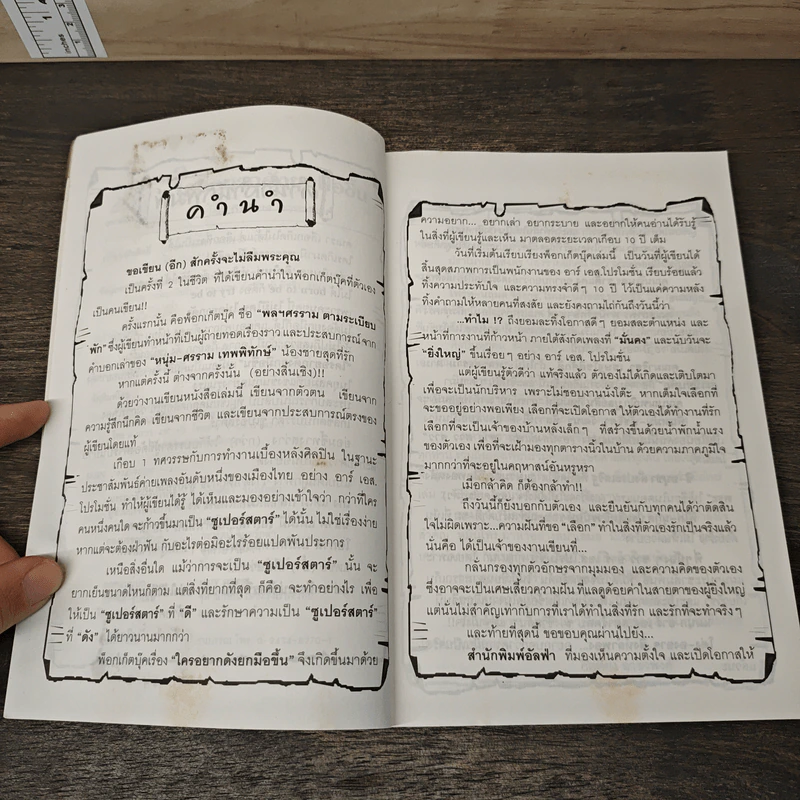 1
2
inches
คำนำ
ขอเขียน (อีก) สักครั้งจะไม่ลืมพระคุณ
เป็นครั้งที่ 2 ในชีวิต ที่ได้เขียนคำนำในพ็อกเก็ตบุ๊คที่ตัวเอง
เป็นคนเขียน!!
ครั้งแรกนั้น คือพ็อกเก็ตบุ๊ค ชื่อ "พลฯศรราม ตามระเบียบ
พัก" ซึ่งผู้เขียนทำหน้าที่เป็นผู้ถ่ายทอดเรื่องราว และประสบการณ์จาก
คำบอกเล่าของ "หนุ่ม-ศรราม เทพพิทักษ์" น้องชายสุดที่รัก
หากแต่ครั้งนี้ ต่างจากครั้งนั้น (อย่างสิ้นเชิง)!!
ด้วยว่างานเขียนหนังสือเล่มนี้ เขียนจากตัวตน เขียนจาก
ความรู้สึกนึกคิด เขียนจากชีวิต และเขียนจากประสบการณ์ตรงของ
ผู้เขียนโดยแท้
เกือบ 1 ทศวรรษกับการทำงานเบื้องหลังศิลปิน ในฐานะ
ประชาสัมพันธ์ค่ายเพลงอันดับหนึ่งของเมืองไทย อย่าง อาร์ เอส.
โปรโมชั่น ทำให้ผู้เขียนได้รู้ ได้เห็นและมองอย่างเข้าใจว่า กว่าที่ใคร
คนหนึ่งคนใด จะก้าวขึ้นมาเป็น "ซูเปอร์สตาร์" ได้นั้น ไม่ใช่เรื่องง่าย
หากแต่จะต้องฝ่าฟัน กับอะไรต่อมิอะไรร้อยแปดพันประการ
เหนือสิ่งอื่นใด แม้ว่าการจะเป็น "ซูเปอร์สตาร์" นั้น จะ
ยากเย็นขนาดไหนก็ตาม แต่สิ่งที่ยากที่สุด ก็คือ จะทำอย่างไร เพื่อ
ให้เป็น "ซูเปอร์สตาร์" ที่ "ดี" และรักษาความเป็น "ซูเปอร์สตาร์"
ที่ "ดัง" ได้ยาวนานมากกว่า
พ็อกเก็ตบุ๊คเรื่อง "ใครอยากดังยกมือขึ้น" จึงเกิดขึ้นมาด้วย
ความอยาก... อยากเล่า อยากระบาย และอยากให้คนอ่านได้รับรู้
ในสิ่งที่ผู้เขียนรู้และเห็น มาตลอดระยะเวลาเกือบ 10 ปี เต็ม
วันที่เริ่มต้นเรียบเรียงพ็อกเก็ตบุ๊คเล่มนี้ เป็นวันที่ผู้เขียนได้
สิ้นสุดสภาพการเป็นพนักงานของ อาร์ เอส.โปรโมชั่น เรียบร้อยแล้ว
ทิ้งความประทับใจ และความทรงจำดีๆ 10 ปี ไว้เป็นแค่ความหลัง
ทิ้งคำถามให้หลายคนที่สงสัย และยังคงถามไถ่กันถึงวันนี้ว่า
...ทำไม !? ถึงยอมละทิ้งโอกาสดีๆ ยอมสละตำแหน่ง และ
หน้าที่การงานที่ก้าวหน้า ภายใต้สังกัดเพลงที่ "มั่นคง" และนับวันจะ
"ยิ่งใหญ่" ขึ้นเรื่อยๆ อย่าง อาร์ เอส. โปรโมชั่น
แต่ผู้เขียนรู้ตัวดีว่า แท้จริงแล้ว ตัวเองไม่ได้เกิดและเติบโตมา
เพื่อจะเป็นนักบริหาร เพราะไม่ชอบงานนั่งโต๊ะ หากเต็มใจเลือกที่
จะขออยู่อย่างพอเพียง เลือกที่จะเปิดโอกาส ให้ตัวเองได้ทำงานที่รัก
เลือกที่จะเป็นเจ้าของบ้านหลังเล็กๆ ที่สร้างขึ้นด้วยน้ำพักน้ำแรง
ของตัวเอง เพื่อที่จะเฝ้ามองทุกตารางนิ้วในบ้าน ด้วยความภาคภูมิใจ
มากกว่าที่จะอยู่ในคฤหาสน์อันหรูหรา
เมื่อกล้าคิด ก็ต้องกล้าทำ!!
ถึงวันนี้ก็ยังบอกกับตัวเอง และยืนยันกับทุกคนได้ว่าตัดสิน
ใจไม่ผิดเพราะ...ความฝันที่ขอ "เลือก" ทำในสิ่งที่ตัวเองรักเป็นจริงแล้ว
นั่นคือ ได้เป็นเจ้าของงานเขียนที่...
กลั่นกรองทุกตัวอักษรจากมุมมอง และความคิดของตัวเอง
ซึ่งอาจจะเป็นเศษเสี้ยวความฝัน ที่แลดูด้อยค่าในสายตาของผู้ยิ่งใหญ่
แต่นั่นไม่สำคัญเท่ากับการที่เราได้ทำในสิ่งที่รัก และรักที่จะทำจริงๆ
และท้ายที่สุดนี้ ขอขอบคุณผ่านไปยัง...
สำนักพิมพ์อัลฟ่า ที่มองเห็นความตั้งใจ และเปิดโอกาสให้